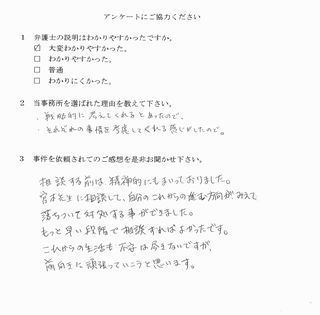 アンケートにご協力ください
1 弁護士の説明はわかりやすかったですか。
☑ 大変わかりやすかった。
□ わかりやすかった。
□ 普通
□ わかりにくかった。
2 当事務所を選ばれた理由を教えて下さい。
・戦略的に考えてくれるとあったので、
・それぞれの事情を考慮してくれる感じがしたので。
3 事件を依頼されてのご感想を是非お聞かせ下さい。
相談する前は、精神的にもまいっておりました。
宮本先生に相談して、自分のこれからの進む方向がみえて
落ちついて対処する事ができました。
もっと早い段階で相談すればよかったです。
これからの生活も不安は尽きないですが、
前向きに頑張っていこうと思います。